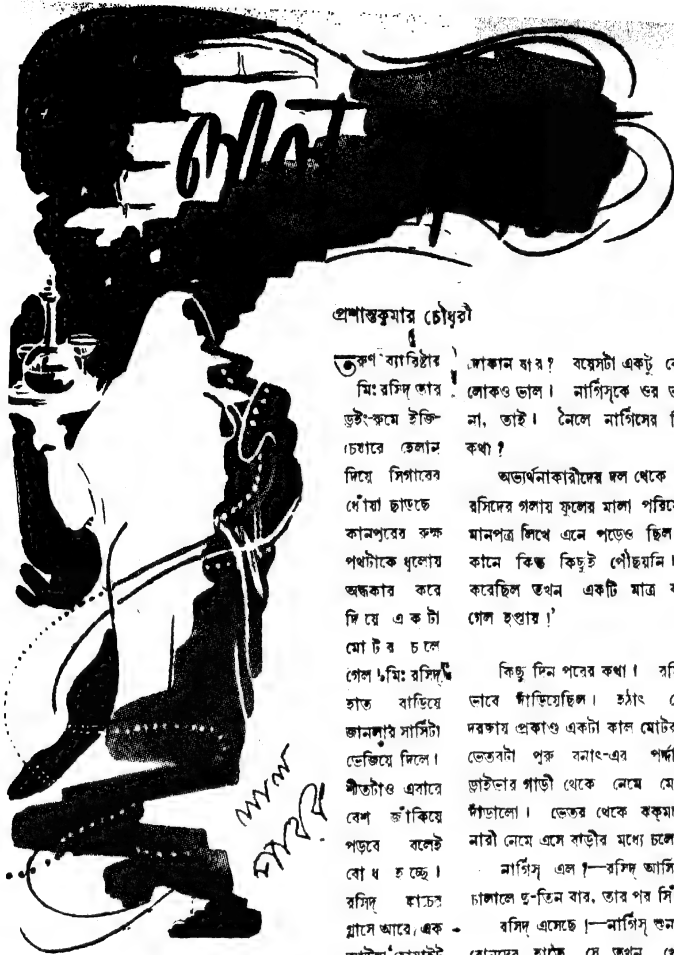 প্রশান্তকুমার চৌধুরী
তরুণ ব্যারিষ্টার
মিঃ রসিদ্ তার
ড্রইং-রুমে ইজি-
চেয়ারে হেলান
দিয়ে সিগারের
ধোঁয়া ছাড়ছে
কানপুরের রুক্ষ
পথটাকে ধুলোয়
অন্ধকার করে
দিয়ে একটা
মোটর চলে
গেল। মিঃ রসিদ্
হাত বাড়িয়ে
জানলার সার্সিটা
ভেজিয়ে দিলে।
শীতটাও এবারে
বেশ জাঁকিয়ে
পড়বে বলেই
বোধ হচ্ছে।
রসিদ্ কাচের
গ্লাসে আরো এক
দোকান যার? বয়েসটা একটু
লোকও ভাল। নার্গিস্‌কে ওর
না, তাই। নৈলে নার্গিসের
কথা?
অভ্যর্থনাকারীদের দল থেকে
রসিদের গলায় ফুলের মালা
মানপত্র লিখে এনে পড়েও ছিল
কানে কিন্তু কিছুই পৌঁছয়নি।
করেছিল তখন একটি মাত্র
গেল হপ্তায়!'
কিছু দিন পরের কথা।
ভাবে দাঁড়িয়েছিল। হঠাৎ
দরজায় প্রকাণ্ড একটা কাল
ভেতরটা পুরু বনাৎ-এর
ড্রাইভার গাড়ী থেকে নেমে
দাঁড়ালো। ভেতর থেকে
নারী নেমে এসে বাড়ীর মধ্যে
নার্গিস্ এল?—রসিদ্
চালালে দু-তিন বার, তার পর
রসিদ্ এসেছে!—নার্গিস্
সে তখন
লাল
পাথর